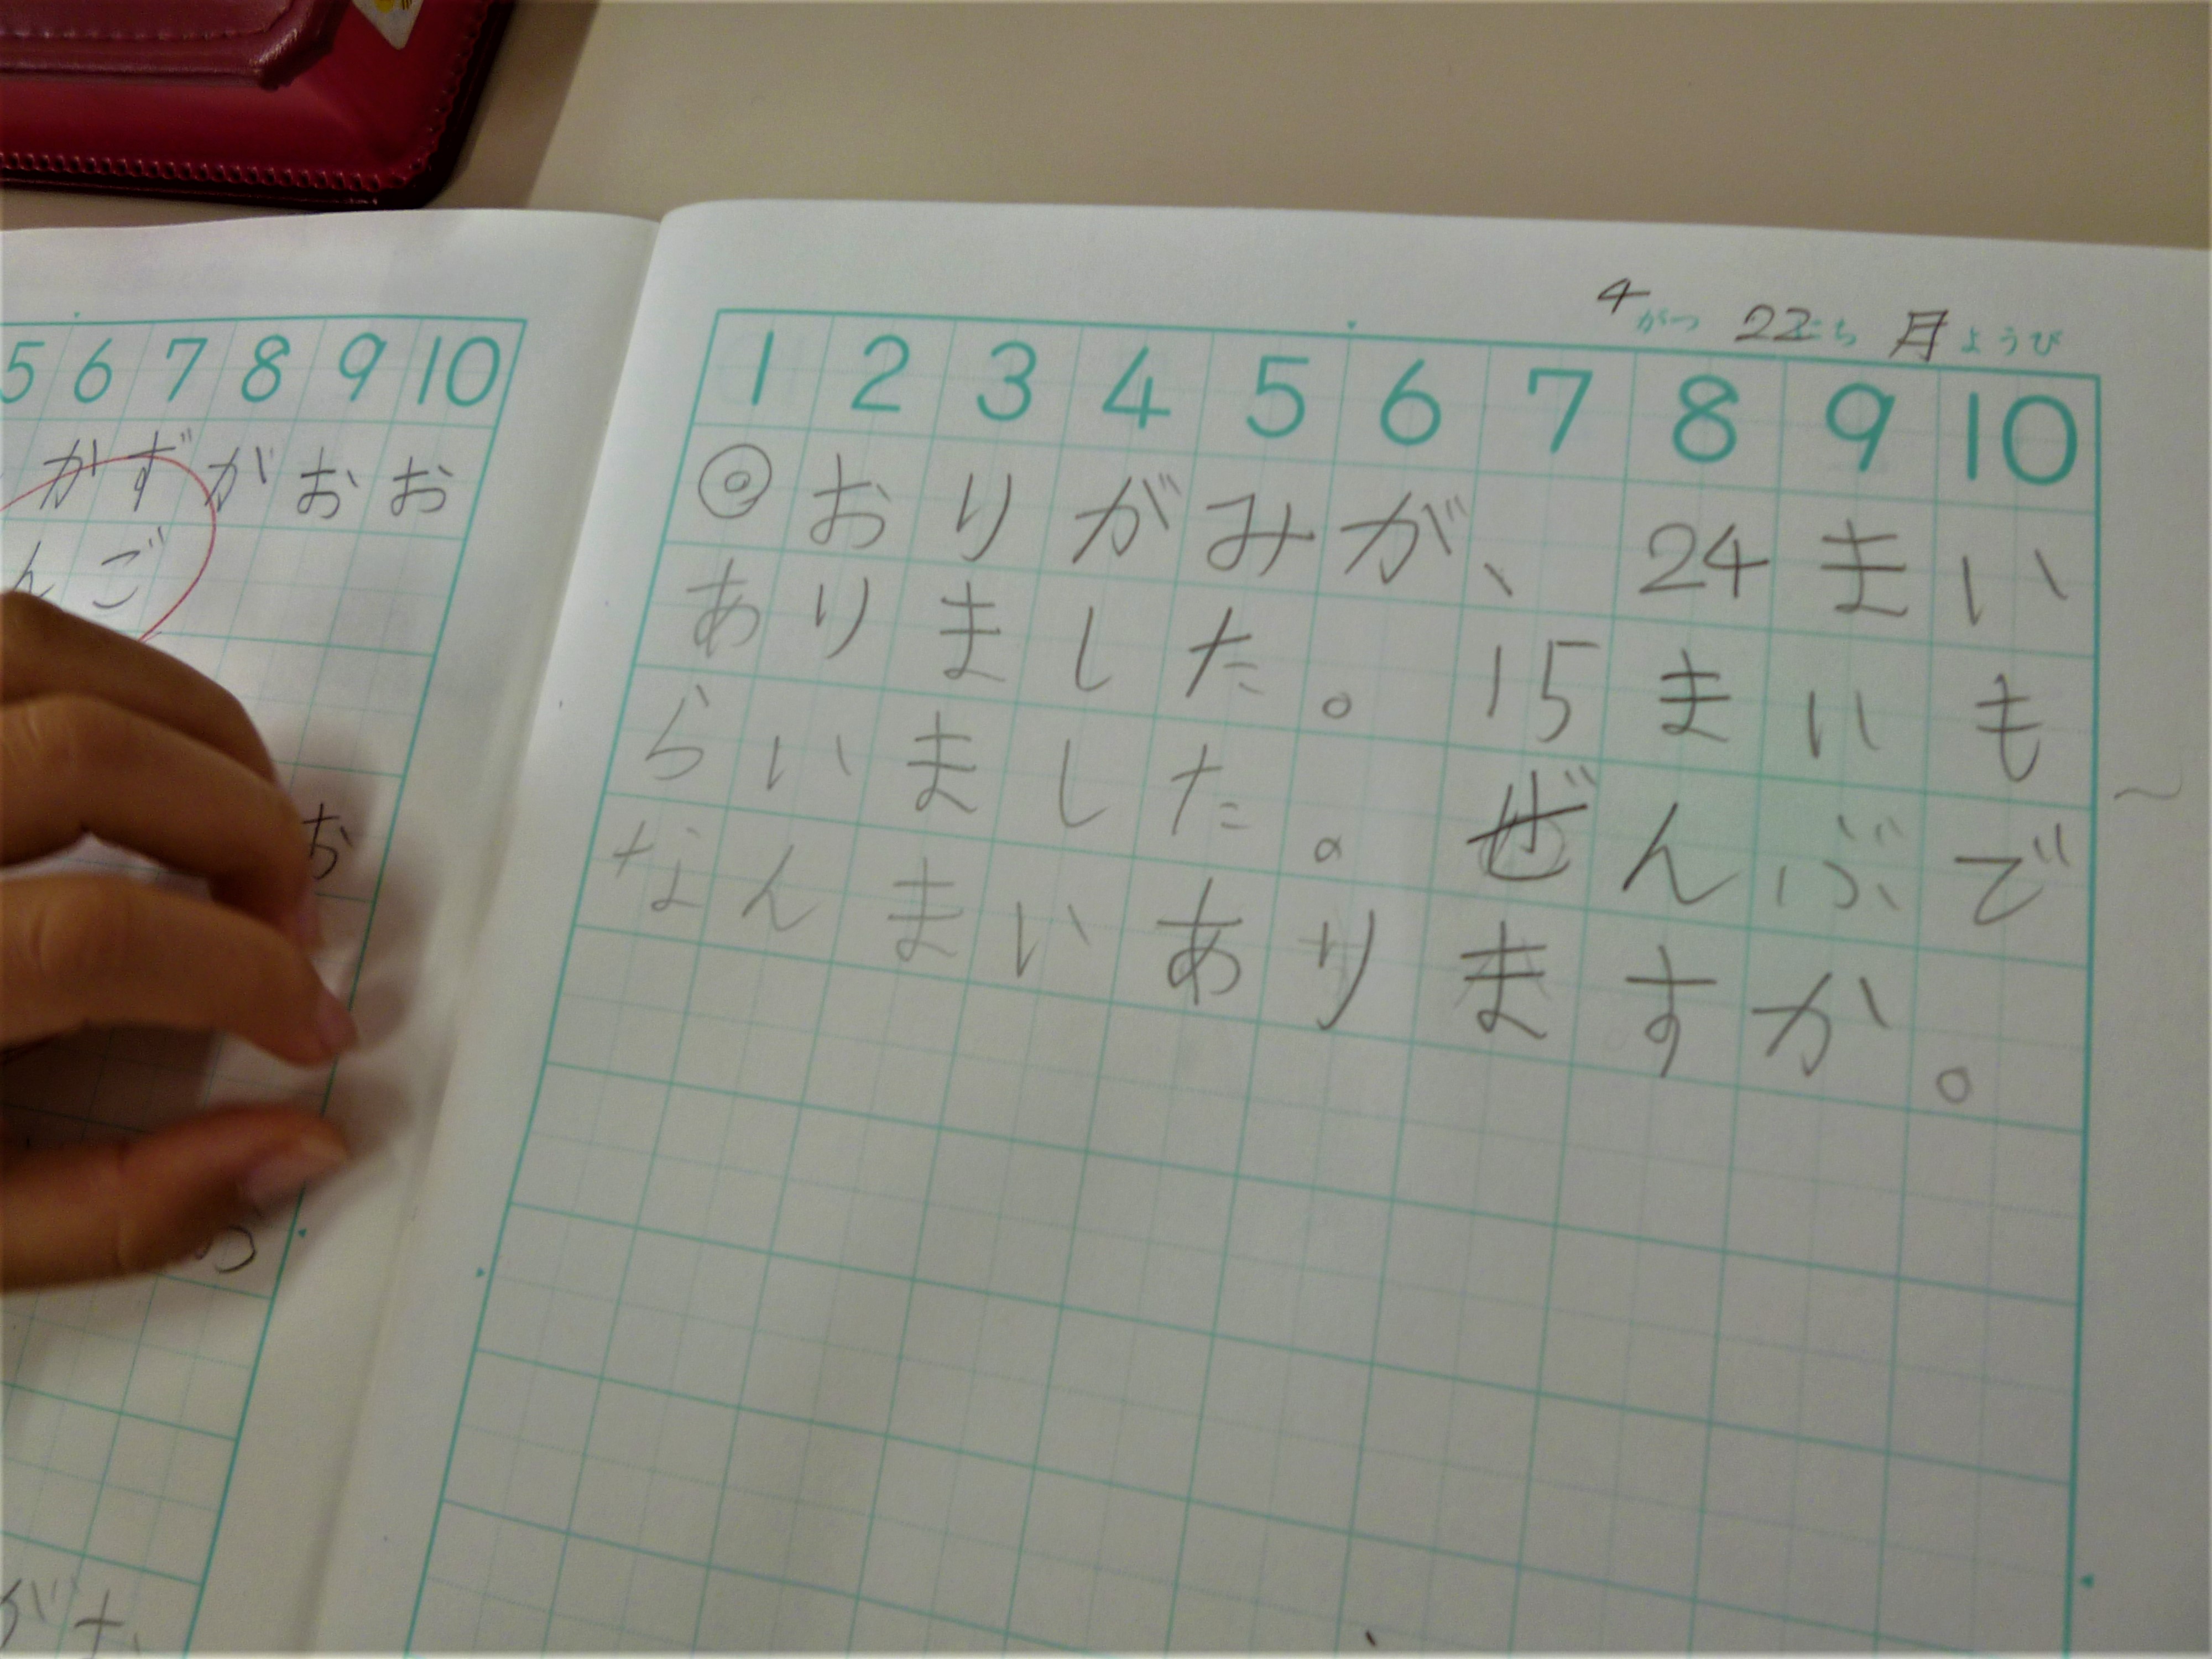 5 6 7 8 9 10
かずがおお
んご
お
4がつ 22にち 月ようび
1 2 3 4 5 6 7 8 9 10
◎おりがみが、24まい
ありました。15まいも
らいました。ぜんぶで
なんまいありますか。